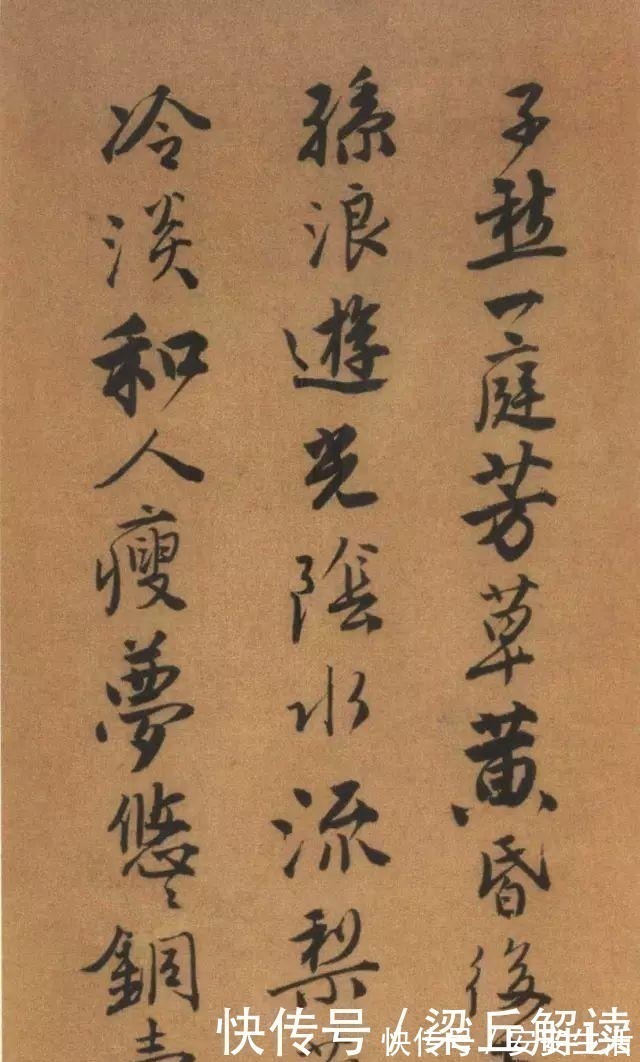 子愁一庭芳草黄昏後
孫浪遊光陰水流梨
冷淡和人瘦夢悠〻銅
快传号 / 梁丘解读
快传号